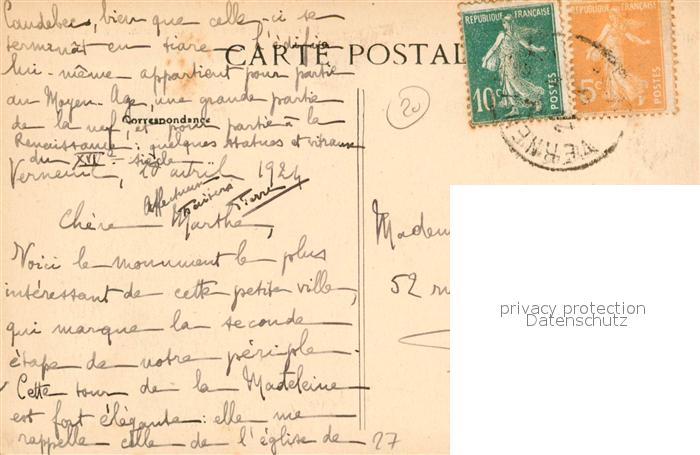 Caudebec, bien que celle-ci se
termanât en tiare. L'édifice
lui-même appartient pour partie
au Moyen-Age, une grande partie
de la nef, et pour partie à la
Renaissance : quelques statues et vitraux
du XVIe siècle.
CARTE POSTALE
Correspondance
REPUBLIQUE FRANÇAISE
10c
POSTES
REPUBLIQUE FRANÇAISE
5c
POSTES
VERNEUIL
20
Verneuil, 20 avril 1924
Affectueux
baisers
Pierre
Chère Marthe,
Voici le monument le plus
intéressant de cette petite ville,
qui marque la seconde
étape de notre périple.
Cette tour de la Madeleine
est fort élégante : elle me
rappelle celle de l'église de
Madem
52 ru
27
privacy protection
Datenschutz